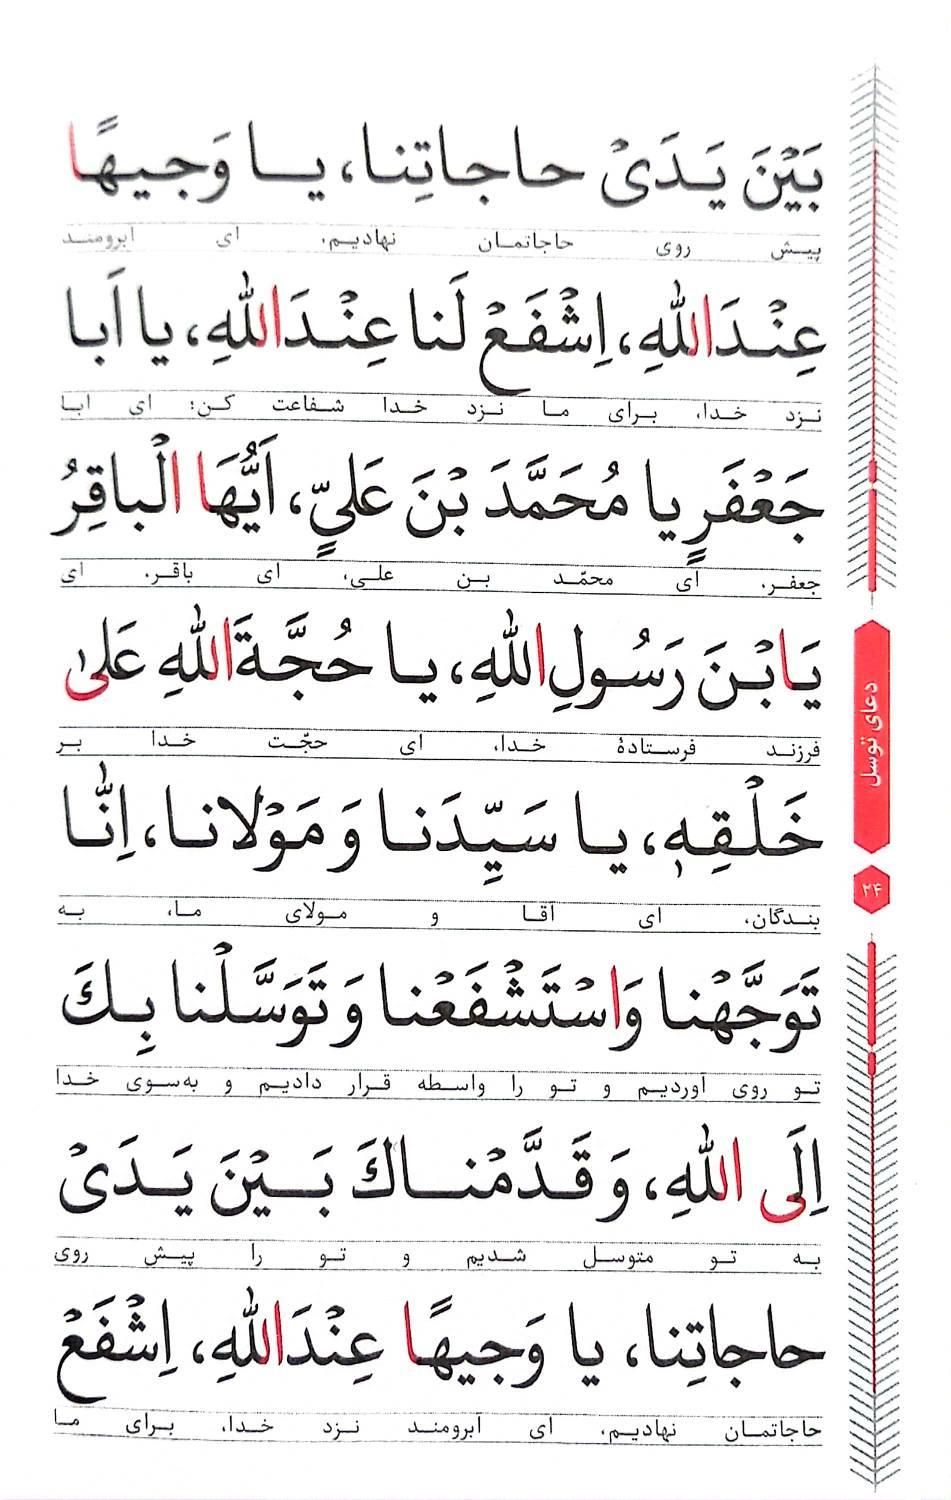 بَيْنَ يَدَىْ حاجاتِنا، يا وَجيهًا
پیش روی حاجاتمان نهادیم. ای آبرومند
عِنْدَاللهِ، اِشْفَعْ لَنا عِنْدَاللهِ، يا اَبا
نزد خدا، برای ما نزد خدا شفاعت کن؛ ای ابا
جَعْفَرٍ يا مُحَمَّدَ بْنَ عَلِيٍّ، اَيُّهَا الْباقِرُ
جعفر. ای محمّد بن علی، ای باقر. ای
يَابْنَ رَسُولِ اللهِ، يا حُجَّةَ اللهِ عَلىٰ
فرزند فرستادهٔ خدا، ای حجّت خدا بر
خَلْقِهٖ، يا سَيِّدَنا وَ مَوْلانا، اِنّا
بندگان، ای آقا و مولای ما، به
تَوَجَّهْنا وَاسْتَشْفَعْنا وَ تَوَسَّلْنا بِكَ
تو روی آوردیم و تو را واسطه قرار دادیم و به‌سوی خدا
اِلَى اللهِ، وَ قَدَّمْناكَ بَيْنَ يَدَىْ
به تو متوسل شدیم و تو را پیش روی
حاجاتِنا، يا وَجيهًا عِنْدَاللهِ، اِشْفَعْ
حاجاتمان نهادیم. ای آبرومند نزد خدا، برای ما
دعای توسل
۲۴